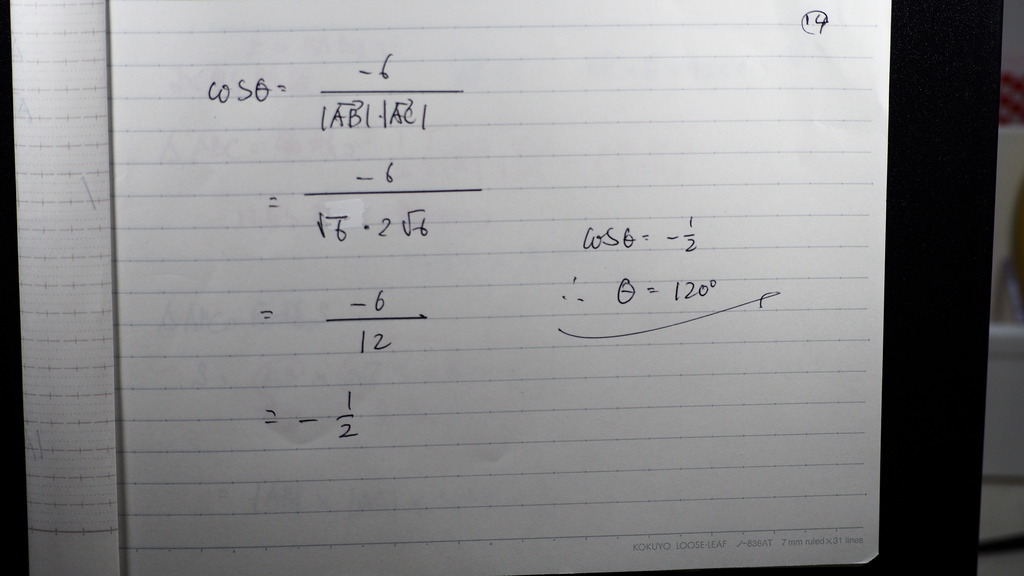 ⑭
cosθ = -6 / |AB→|·|AC→|
= -6 / √6 · 2√6
= -6 / 12
= - 1/2
cosθ = - 1/2
∴ θ = 120°
KOKUYO LOOSE-LEAF ノ-836AT 7 mm ruled x 31 lines